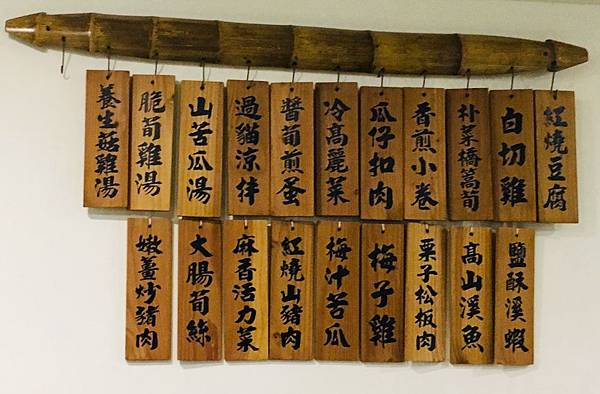 紅燒豆腐
白切雞
朴菜桶篙荀
香煎小卷
瓜仔扣肉
冷高麗菜
醬荀煎蛋
過貓涼拌
山苦瓜湯
脆荀雞湯
養生菇雞湯
鹽酥溪蝦
高山溪魚
栗子松板肉
梅子雞
梅汁苦瓜
紅燒山豬肉
麻香活力菜
大腸荀絲
嫩薑炒豬肉